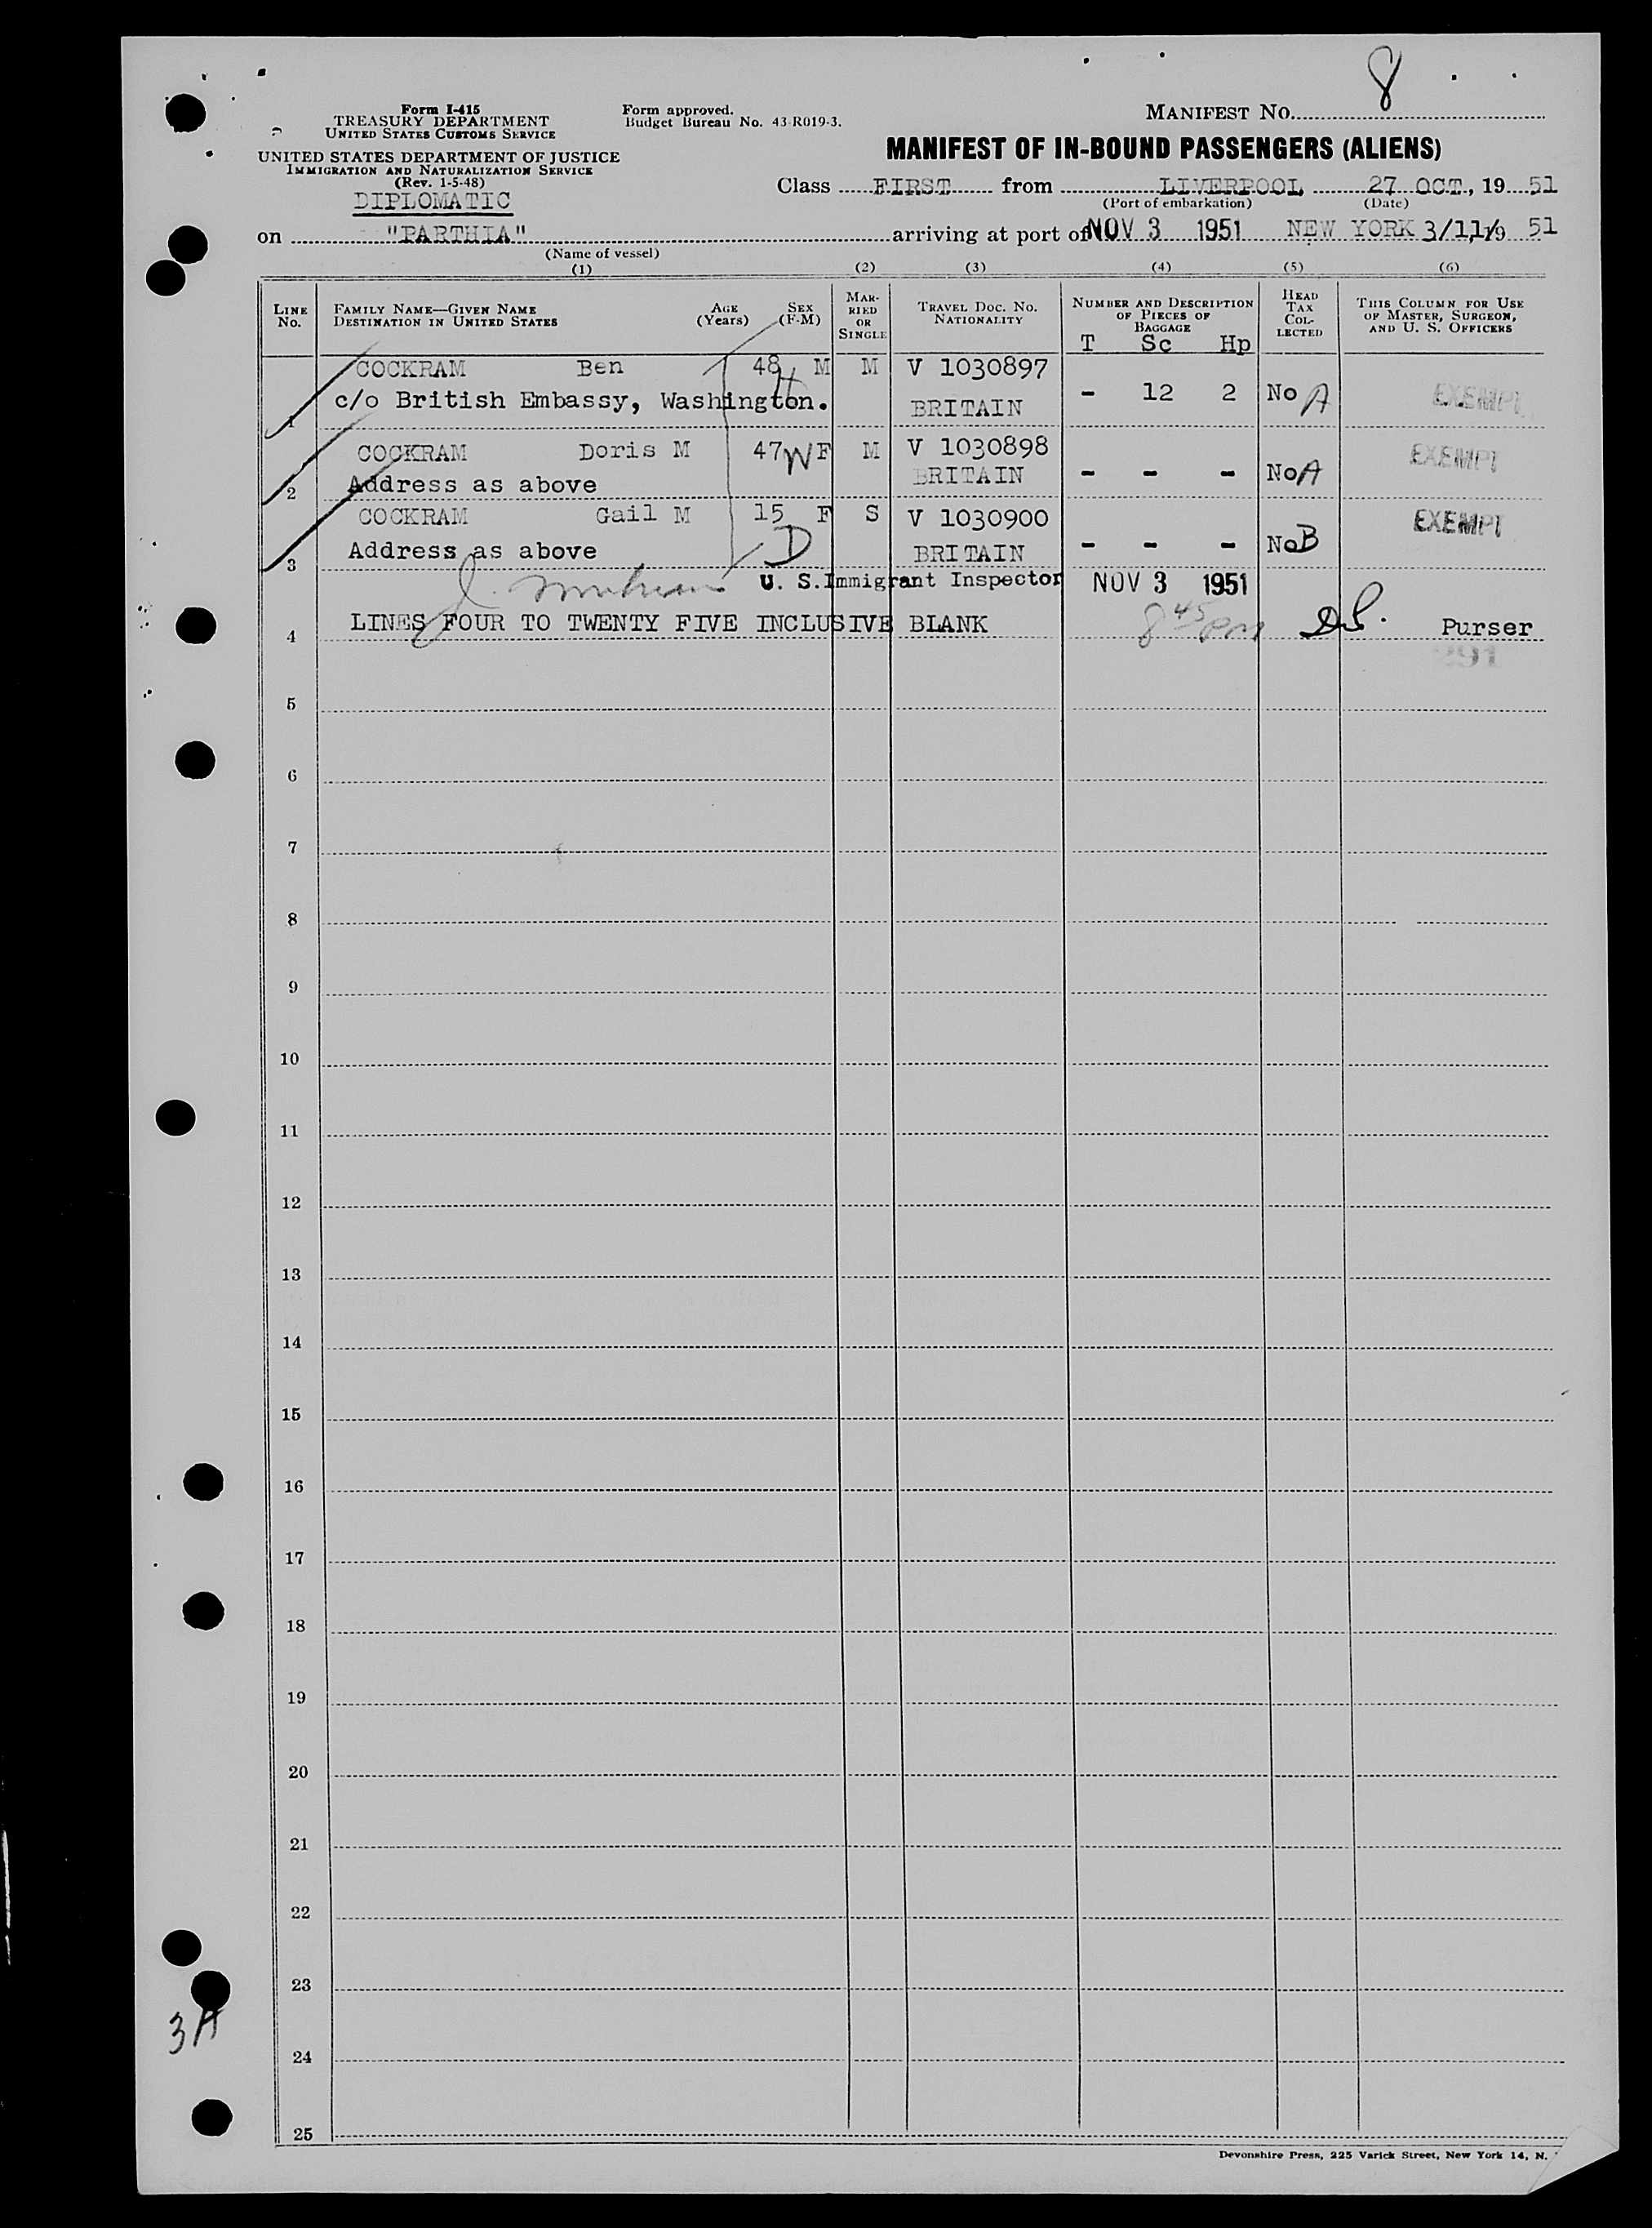 8
Form I-415
TREASURY DEPARTMENT
UNITED STATES CUSTOMS SERVICE
Form approved.
Budget Bureau No. 43-R019-3.
MANIFEST NO.
UNITED STATES DEPARTMENT OF JUSTICE
IMMIGRATION AND NATURALIZATION SERVICE
(Rev. 1-5-48)
DIPLOMATIC
MANIFEST OF IN-BOUND PASSENGERS (ALIENS)
Class FIRST from LIVERPOOL 27 OCT., 19 51
(Port of embarkation) (Date)
on "PARTHIA" arriving at port of NOV 3 1951 NEW YORK 3/11/19 51
(Name of vessel)
(1) (2) (3) (4) (5) (6)
LINE No. FAMILY NAME—GIVEN NAME DESTINATION IN UNITED STATES AGE (Years) SEX (F-M) MARRIED OR SINGLE TRAVEL DOC. NO. NATIONALITY NUMBER AND DESCRIPTION OF PIECES OF BAGGAGE HEAD TAX COLLECTED THIS COLUMN FOR USE OF MASTER, SURGEON, AND U. S. OFFICERS
T Sc Hp
COCKRAM Ben 48 H M M V 1030897
1 c/o British Embassy, Washington. BRITAIN - 12 2 No A EXEMPT
COCKRAM Doris M 47 W F M V 1030898
2 Address as above BRITAIN - - - No A EXEMPT
COCKRAM Gail M 15 F S V 1030900
3 Address as above D BRITAIN - - - No B EXEMPT
U. S. Immigrant Inspector NOV 3 1951
4 LINES FOUR TO TWENTY FIVE INCLUSIVE BLANK 8 45 PM Purser
291
5
6
7
8
9
10
11
12
13
14
15
16
17
18
19
20
21
22
23
3A
24
25
Devonshire Press, 225 Varick Street, New York 14, N.